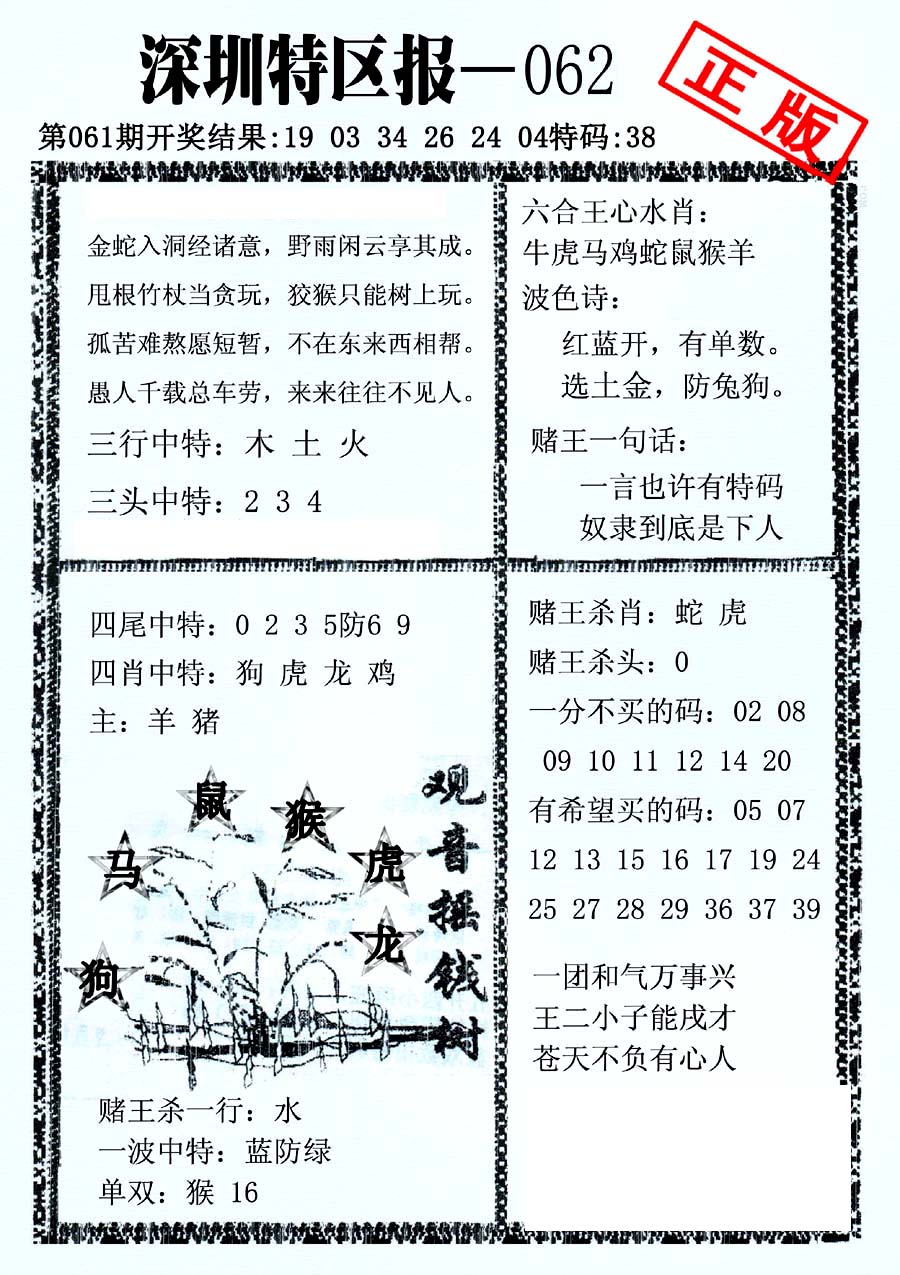 深圳特区报—062
正版
第061期开奖结果:19 03 34 26 24 04特码:38
金蛇入洞经诸意，野雨闲云享其成。
甩根竹杖当贪玩，狡猴只能树上玩。
孤苦难熬愿短暂，不在东来西相帮。
愚人千载总车劳，来来往往不见人。
三行中特：木 土 火
三头中特：2 3 4
六合王心水肖：
牛虎马鸡蛇鼠猴羊
波色诗：
红蓝开，有单数。
选土金，防兔狗。
赌王一句话：
一言也许有特码
奴隶到底是下人
四尾中特：0 2 3 5防6 9
四肖中特：狗 虎 龙 鸡
主：羊 猪
鼠
猴
马
虎
龙
狗
观音摇钱树
赌王杀一行：水
一波中特：蓝防绿
单双：猴 16
赌王杀肖：蛇 虎
赌王杀头：0
一分不买的码：02 08
09 10 11 12 14 20
有希望买的码：05 07
12 13 15 16 17 19 24
25 27 28 29 36 37 39
一团和气万事兴
王二小子能戌才
苍天不负有心人